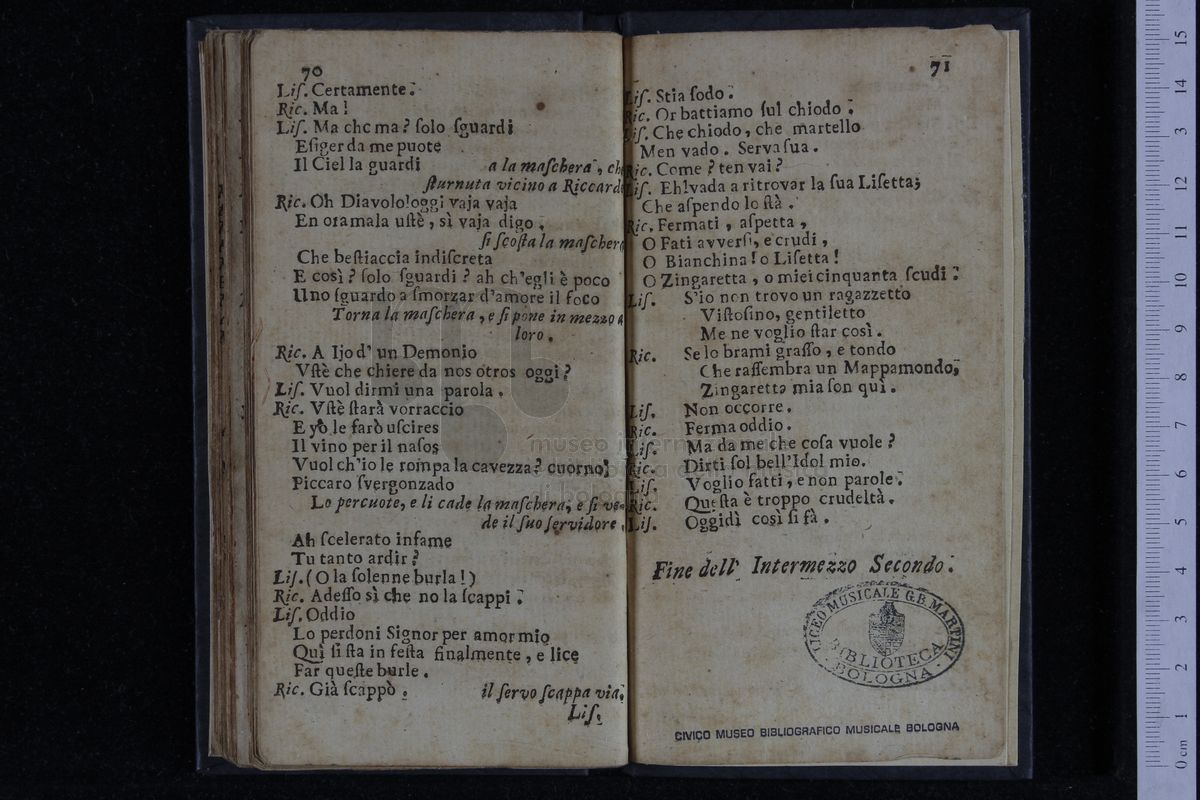 70
Liſ. Certamente.
Ric. Ma!
Liſ. Ma che ma? ſolo ſguardi
Eſiger da me puote
Il Ciel la guardi a la maſchera, ch
ſturnuta vicino a Riccard
Ric. Oh Diavolo! oggi vaja vaja
En oramala uſtè, sì vaja digo.
ſi ſcoſta la maſcher
Che beſtiaccia indiſcreta
E così? ſolo ſguardi? ah ch'egli è poco
Uno ſguardo a ſmorzar d'amore il foco
Torna la maſchera, e ſi pone in mezzo a
loro.
Ric. A Ijo d' un Demonio
Vſtè che chiere da nos otros oggi?
Liſ. Vuol dirmi una parola.
Ric. Vſtè ſtarà vorraccio
E yò le farò uſcires
Il vino per il naſos
Vuol ch'io le rompa la cavezza? cuorno!
Piccaro ſvergonzado
Lo percuote, e li cade la maſchera, e ſi ve-
de il ſuo ſervidore.
Ah ſcelerato infame
Tu tanto ardir?
Liſ. (O la ſolenne burla!)
Ric. Adeſſo sì che no la ſcappi.
Liſ. Oddio
Lo perdoni Signor per amor mio
Quì ſi ſta in feſta finalmente, e lice
Far queſte burle.
Ric. Già ſcappò. il ſervo ſcappa via.
Liſ.
71
Liſ. Stia ſodo.
Ric. Or battiamo ſul chiodo.
Liſ. Che chiodo, che martello
Men vado. Serva ſua.
Ric. Come? ten vai?
Liſ. Eh! vada a ritrovar la ſua Liſetta;
Che aſpendo lo ſtà.
Ric. Fermati, aſpetta,
O Fati avverſi, e crudi,
O Bianchina! o Liſetta!
O Zingaretta, o miei cinquanta ſcudi.
Liſ. S'io non trovo un ragazzetto
Viſtoſino, gentiletto
Me ne voglio ſtar così.
Ric. Se lo brami graſſo, e tondo
Che raſſembra un Mappamondo,
Zingaretta mia ſon quì.
Liſ. Non occorre.
Ric. Ferma oddio.
Liſ. Ma da me che coſa vuole?
Ric. Dirti ſol bell'Idol mio.
Liſ. Voglio fatti, e non parole.
Ric. Queſta è troppo crudeltà.
Liſ. Oggidì così ſi fà.
Fine dell' Intermezzo Secondo.
LICEO MUSICALE G.B. MARTINI
BIBLIOTECA
BOLOGNA
CIVICO MUSEO BIBLIOGRAFICO MUSICALE BOLOGNA
15
14
13
12
11
10
9
8
7
6
5
4
3
2
1
0 cm